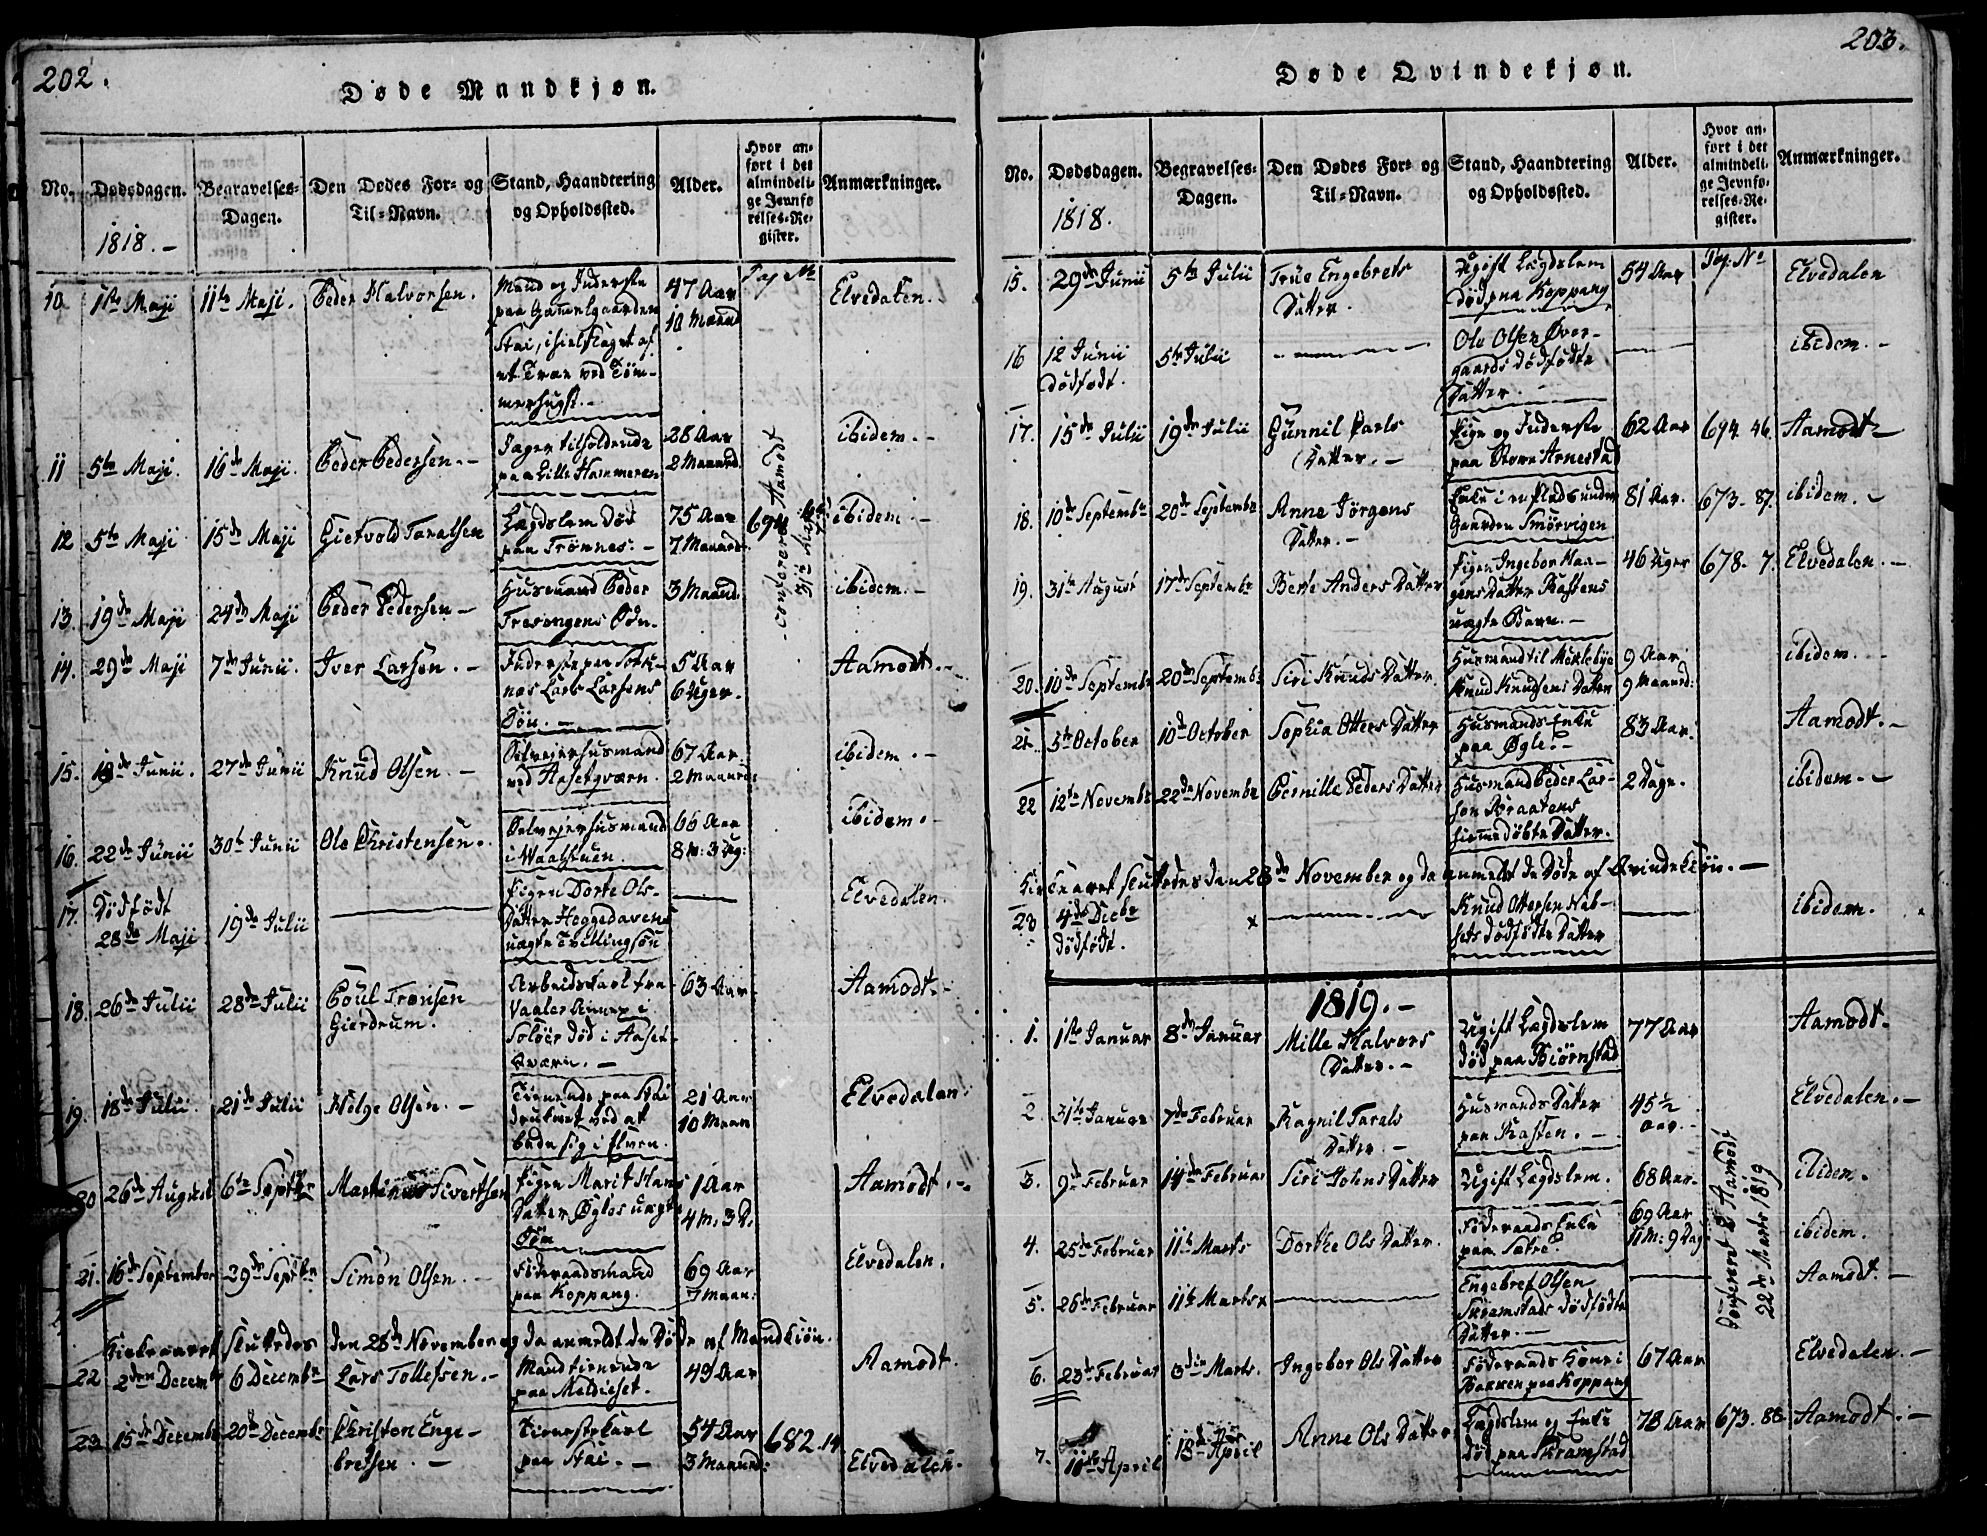 202.
Døde Mandkjøn.
No.
Dødsdagen.
1818. -
Begravelses-
Dagen.
Den Dødes For- og
Til-Navn.
Stand, Haandtering
og Opholdssted.
Alder.
Hvor an-
ført i det
almindeli-
ge Jevnfø
relses-Re-
gister.
Anmærkninger.
Pag No
10. 1ste Maji 11te Maji. Peder Halvorsen.
Mand og Inderste
paa Gammelgaarden
Stai, ihielslaget af
et Træe ved Töm-
merhugst. -
47 Aar
10 Maaned
Elvedalen.
11 5te Maji. 16de Maji. Peder Pedersen. -
Jager tilholdende
paa Lille Hammeren
28 Aar
2 Maaned.
ibidem. -
12 5te Maji 15de Maji Gietvold Taralsen
Lægdslem död
paa Trønnes. -
75 Aar
7 Maaned.
694
ibidem. -
13. 19de Maji 24de Maji Peder Pedersen -
Husmand Peder
Søn. -
3 Maaned.
ibidem. -
14. 29de Maji 7de Junii. Iver Larsen. -
Inderste paa
Lars Larsens
Sön. -
5 Aar
6 Uger.
Aamodt. -
15. 19de Junii. 27de Junii Knud Olsen. -
Selvejerhusmand
ved Aasetqværn.
67 Aar
2 Maaned:
ibidem. -
16. 22de Junii 30te Junii Ole Christensen.
Selvejerhusmand
i
66 Aar
8 M: 3 Ug:
ibidem.
17. Dödfödt
28de Maji 19de Julii
Pigen Dorte Ols-
Datter Heggedavens
uægte Tvillingsön
Elvedalen
18. 26de Julii 28de Julii Poul Tronsen
Gierdrum.
Arbeidskarl fra
Vaaler Annex i
Solöer död i Aaset-
qværn. -
63 Aar
Aamodt. -
19. 18de Julii. 21de Julii Helge Olsen. -
Tienende paa Stai
druknet ved at
bade sig i Elven.
21 Aar
10 Maan
Elvedalen.
20 26de August 6te Septbr Martinus Sivertsen
Pigen Marit Hans
Datter Øgles uægte
Sön
1 Aar
4 M: 3 D.
Aamodt. -
21. 16de September 29de Septbr Simon Olsen. -
Föderaadsmand
paa Koppang.
69 Aar
7 Maan:
Elvedalen.
Kirkeaaret sluttedes den 28de November og da anmeldt de Döde af Mandkiön.
22 2den Decembr 6 Decembr Lars Tollefsen. -
Mand tienende
paa
49 Aar
Aamodt.
23 15de Decembr 20de Decembr Christen Enge-
bretsen. -
Tienestekarl
paa Stai. -
54 Aar
3 Maaned:
682. 14
Elvedalen.
confereret Aamodt
203.
Døde Qvindekjøn.
No.
Dødsdagen.
1818.
Begravelses-
Dagen.
Den Dødes For- og
Til-Navn.
Stand, Haandtering
og Opholdssted.
Alder.
Hvor an-
ført i det
almindeli-
ge Jevnfø-
relses-Re-
gister.
Anmærkninger.
Pg. No
15. 29de Junii 5te Julii True Engebrets
Datter.
Ugift Lægdslem
död paa Koppang
54 Aar
Elvedalen
16 12 Junii
dödfödt. 5te Julii
Ole Olsen Over-
gaards dödfödte
Datter.
ibidem. -
17. 15de Julii 19de Julii Gunnil Carls
Datter. -
Pige og Inderste
paa Arnestad
62 Aar 694. 46. Aamodt -
18. 10de Septembr 20de Septembr Anne Jörgens
Datter. -
Enke i en Plads under
Gaarden Smörvigen
81 Aar. 673. 87. ibidem. -
19. 31te August 17de Septembr Berte Anders Datter
Pigen Ingebor Haa-
gens Datter Rastens
uægte Barn. -
46 Uger 678. 7. Elvedalen. -
20. 10de Septembr 20de Septembr Siri Knuds Datter
Husmand til Meklebye
Knud Knudsens Datter
9 Aar
9 Maaned:
ibidem. -
21. 5te October 10de October Sophia Otters Datter
Husmands Enke
paa Øgle. -
83 Aar.
Aamodt. -
22 12te Novembr 22de Novembr Pernille Peders Datter
Husmand Peder Lar-
sen Braatens
hiemmedöbte Datter.
2 Dage.
ibidem. -
Kirkeaaret sluttedes den 28de November og da anmeldt de Döde af Qvindekiön. -
23 4de Decbr
dödfödt.
Knud Ottersen Neb-
sets dödfödte Datter
ibidem.
1819. -
1. 1ste Januar 8de Januar Mille Halvors
Datter. -
Ugift Lægdslem
död paa Biörnstad
77 Aar
Aamodt.
2 31te Januar 7de Februar Ragnil Tarals
Datter. -
Husmands Datter
paa Rasten. -
45 ½
Aar. -
Elvedalen. -
3. 9de Februar 14de Februar Siri Johns Datter
Ugift Lægdslem.
68 Aar.
ibidem.
4. 25de Februar 11te Marts Dorthe Ols Datter.
Föderaads Enke
paa Sætre.
69 Aar
11 M: 9 Dag:
ibidem.
5. 26de Februar 11te Marts
Engebret Olsen
Skramstads dödfödte
Datter. -
Aamodt. -
6. 23de Februar Marts. Ingebor Ols Datter
Föderaads Kone i
Bakken paa Koppang
67 Aar
Elvedalen. -
7. 11te April 18de April Anne Ols Datter
Lægdslem og Enke
död paa Skramstad
78 Aar 673. 88 Aamodt. -
Confereret Aamodt
22de Marts 1819